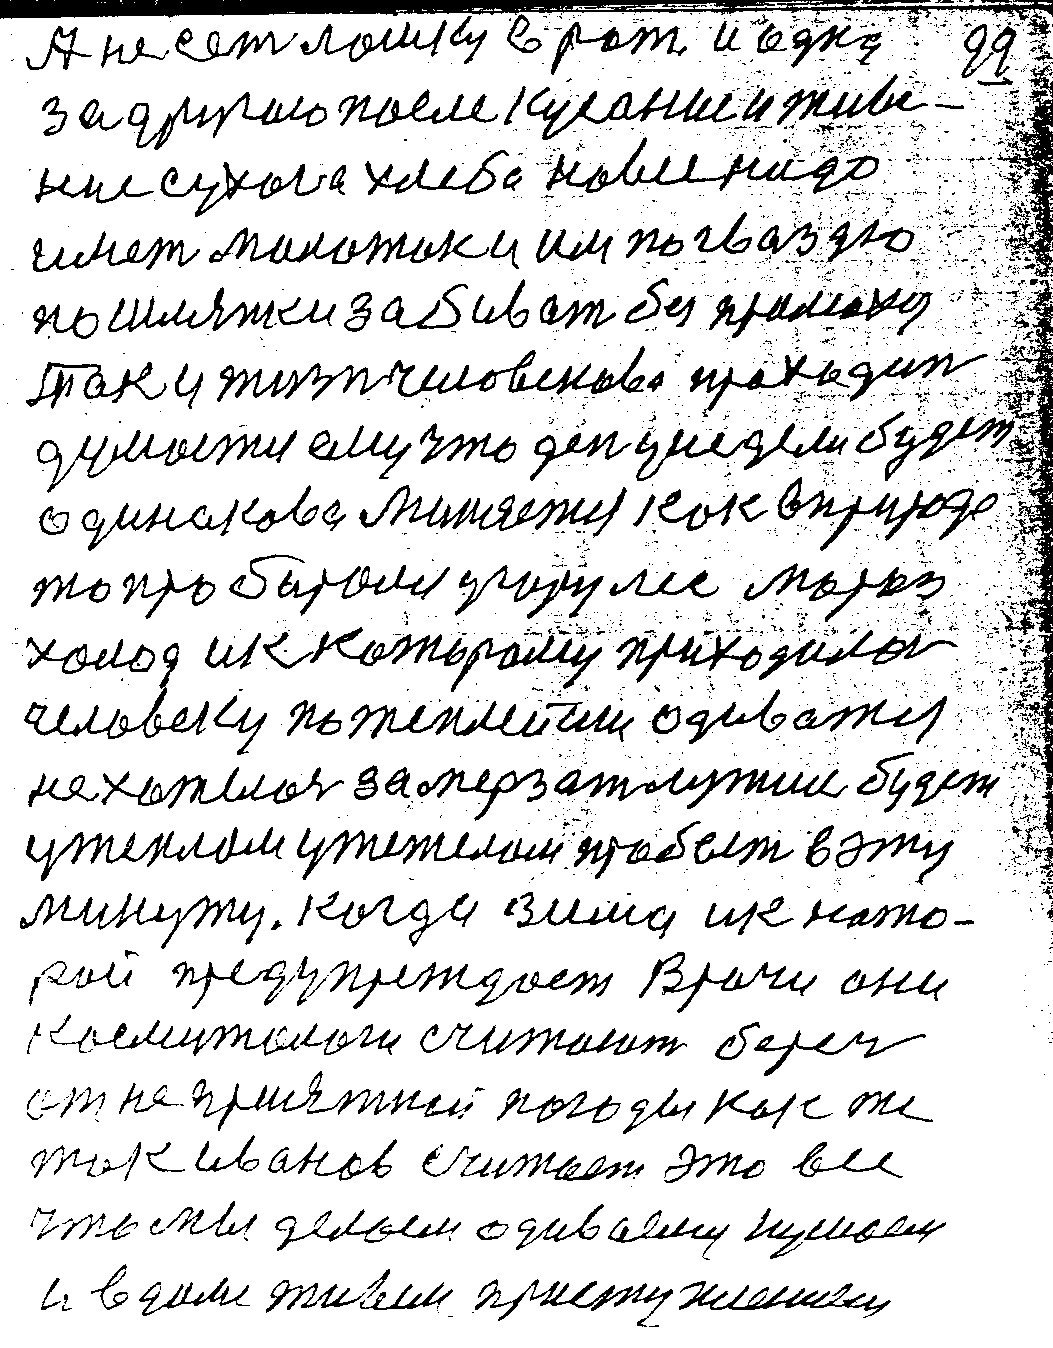 А несет лошку в рот. и одна 99
за другою после кусание и живе-
ние сухога хлеба новые надо
имет молоток и им по гваздю
по шляжки забиват без промоха
Так и жизн человекова проходит
думости ему что ден и недели будет
одинакова Миняется как в природе
то про бытом угору лес мороз
холод ик которому приходилос
человеку потеплейши одеватся
нехотелос замерзат лутше будет
у теплом у тежелом пробыт в эту
минуту. когда зима ик кото-
рой предупреждает Врачи они
космитологи считают береч
от неприятной погоды как же
так иванов считает это все
что мы делаем одиваемся кушаем
и в доме живем преступлением